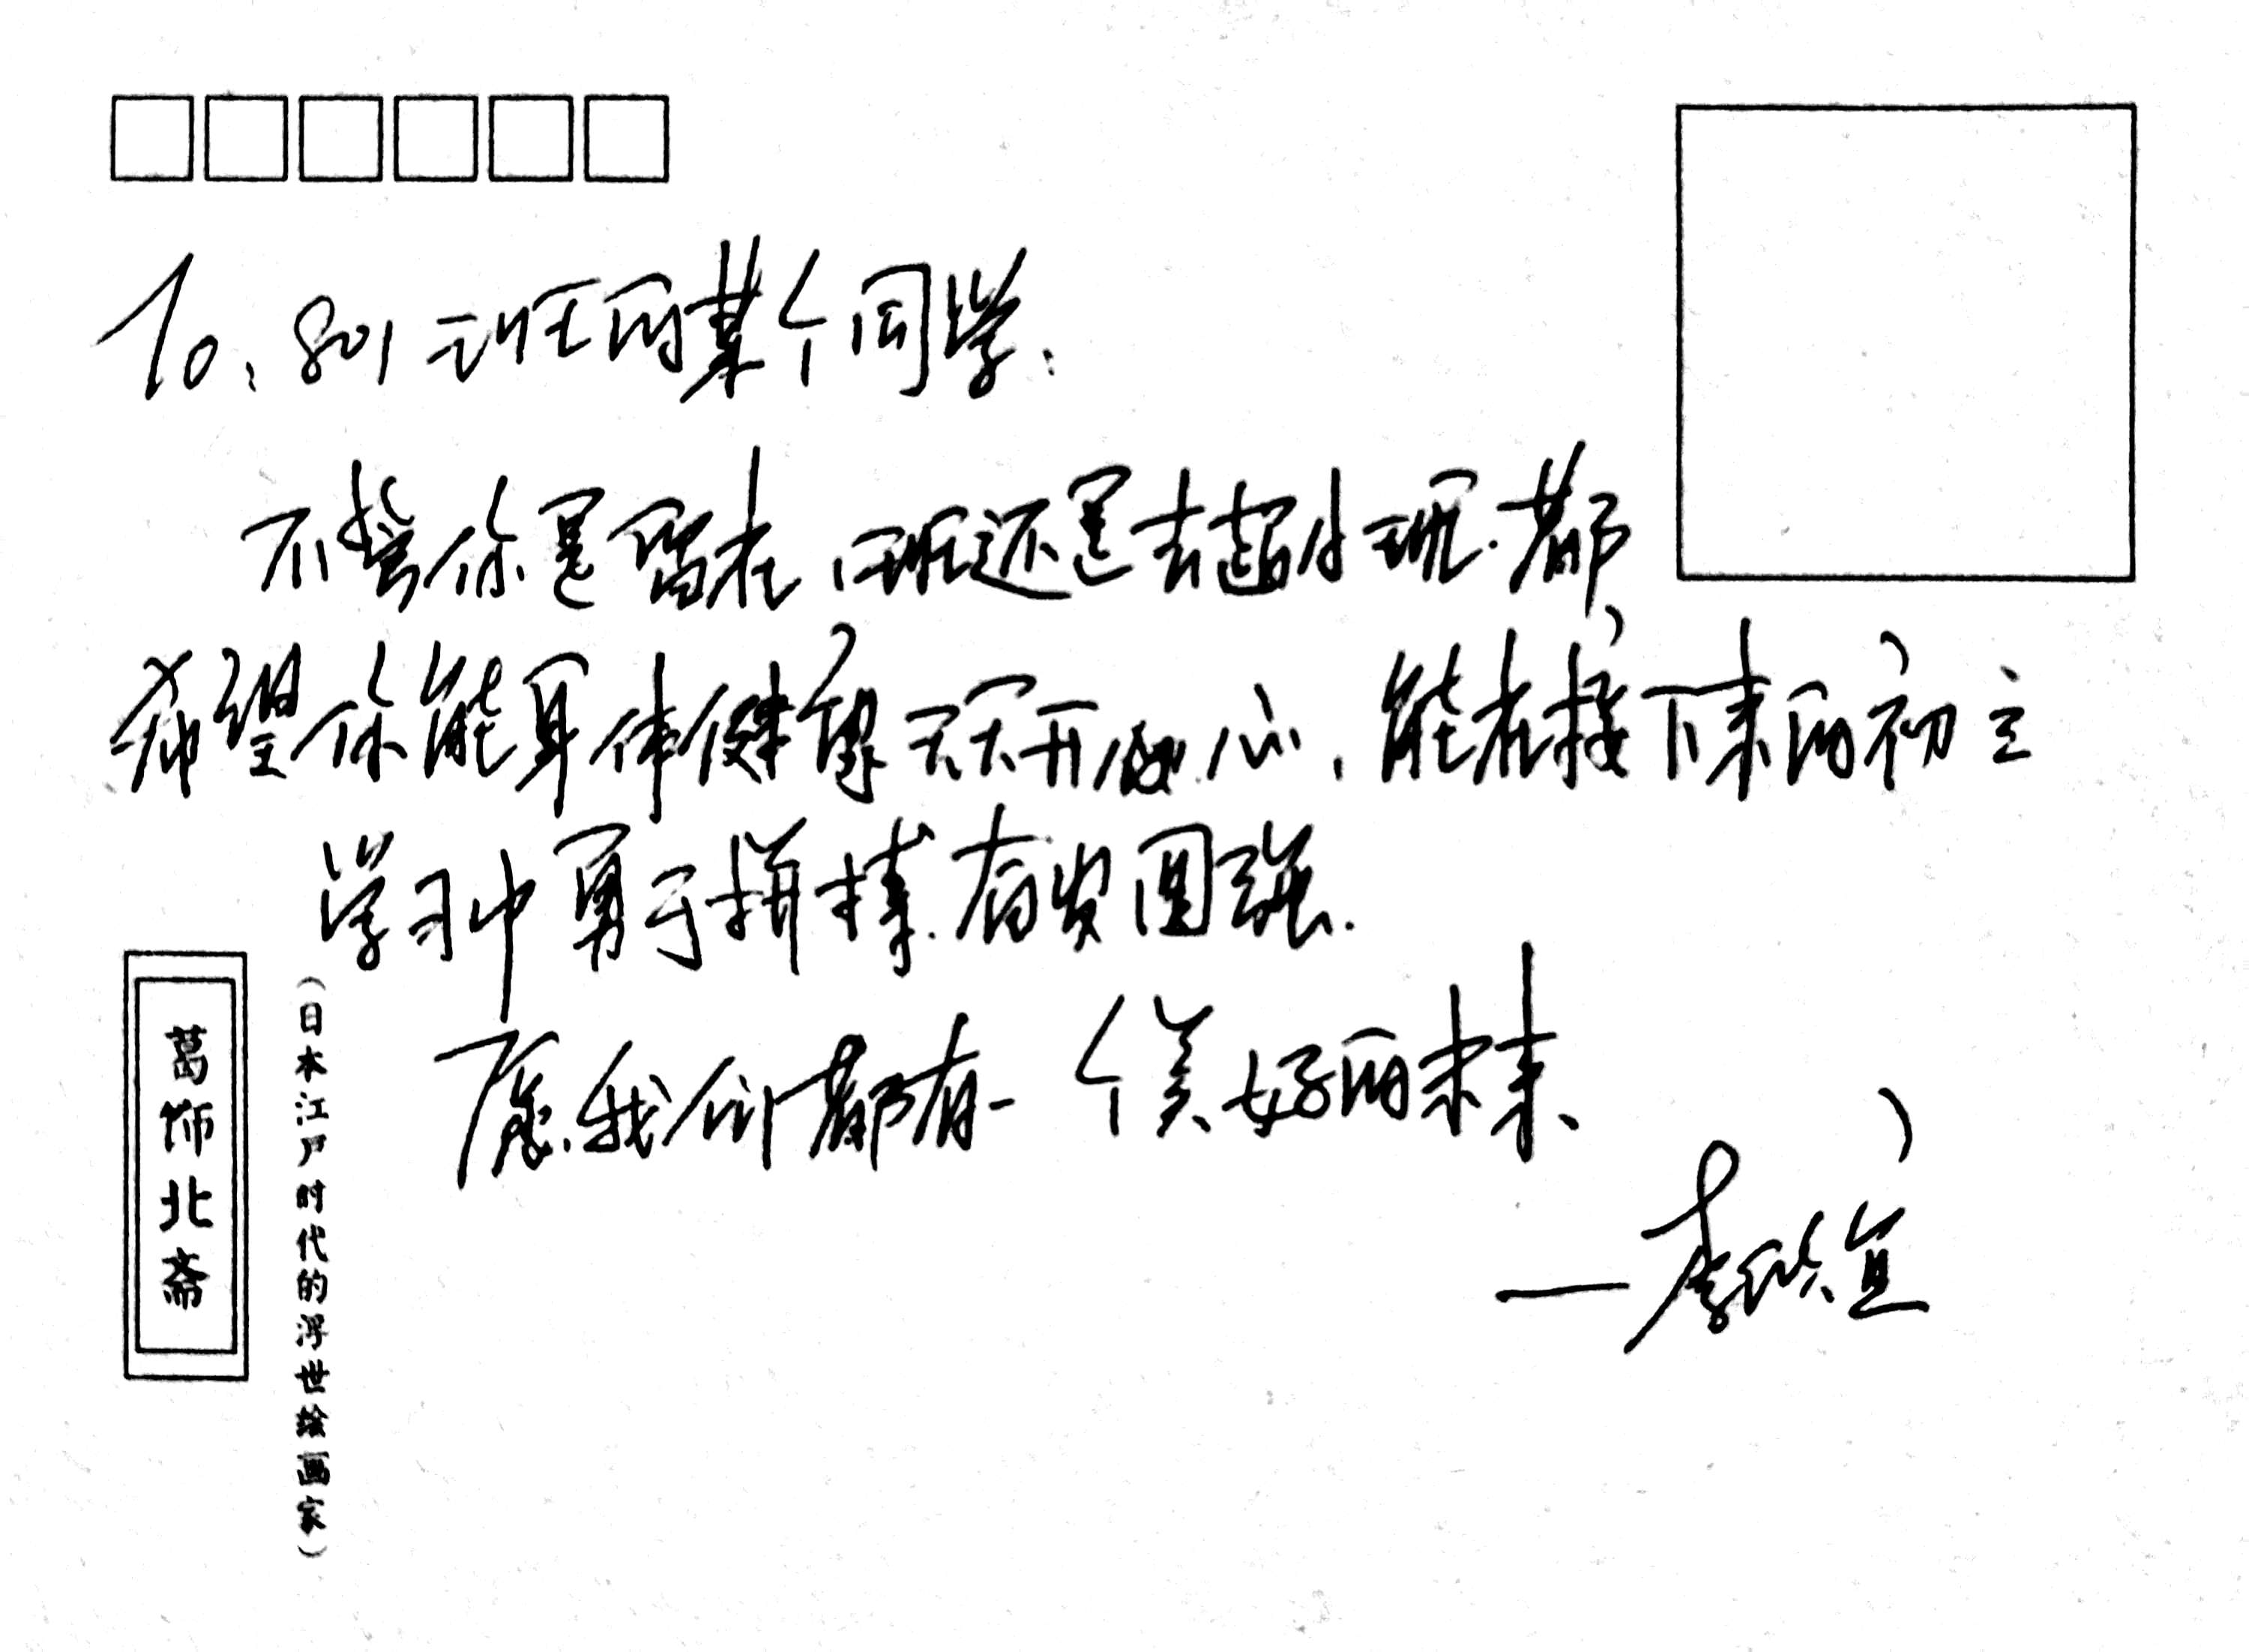 To: 801班的某个同学:
不管你是留在1班还是去超小班.都
希望你能身体健康天天开心、能在接下来的初三
学习中勇于拼搏.奋发图强.
愿我们都有一个美好的未来、
—李
葛饰北斋
(日本江户时代的浮世绘画家)